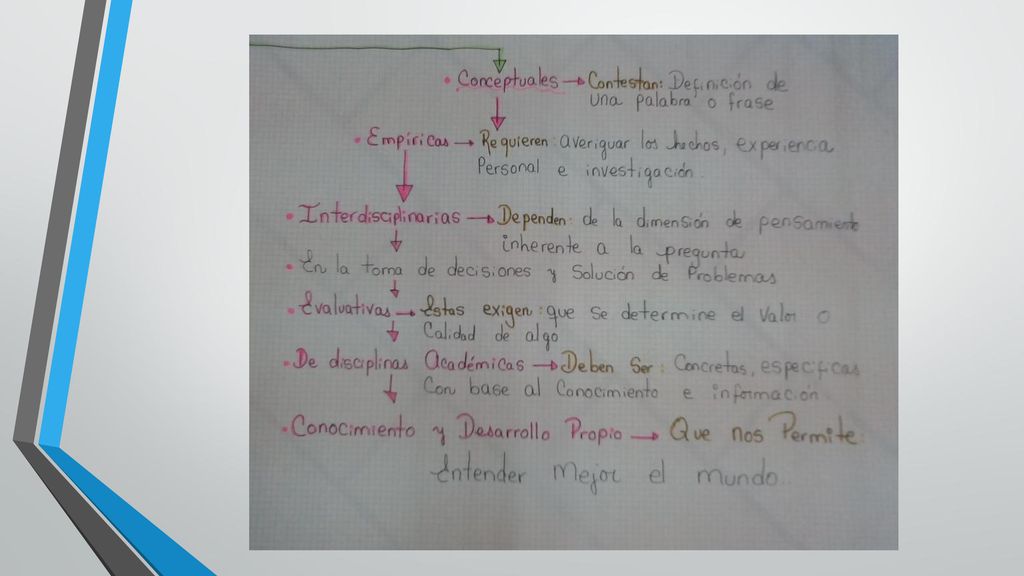 • Conceptuales → Contestan: Definición de
una palabra o frase
• Empíricas → Requieren: averiguar los hechos, experiencia
Personal e investigación.
• Interdisciplinarias → Dependen: de la dimensión de pensamiento
inherente a la pregunta
• En la toma de decisiones y Solución de Problemas
• Evaluativas → Estas exigen: que se determine el Valor o
Calidad de algo
• De disciplinas Académicas → Deben Ser: Concretas, específicas
Con base al Conocimiento e información.
• Conocimiento y Desarrollo Propio → Que nos Permite:
Entender Mejor el mundo...